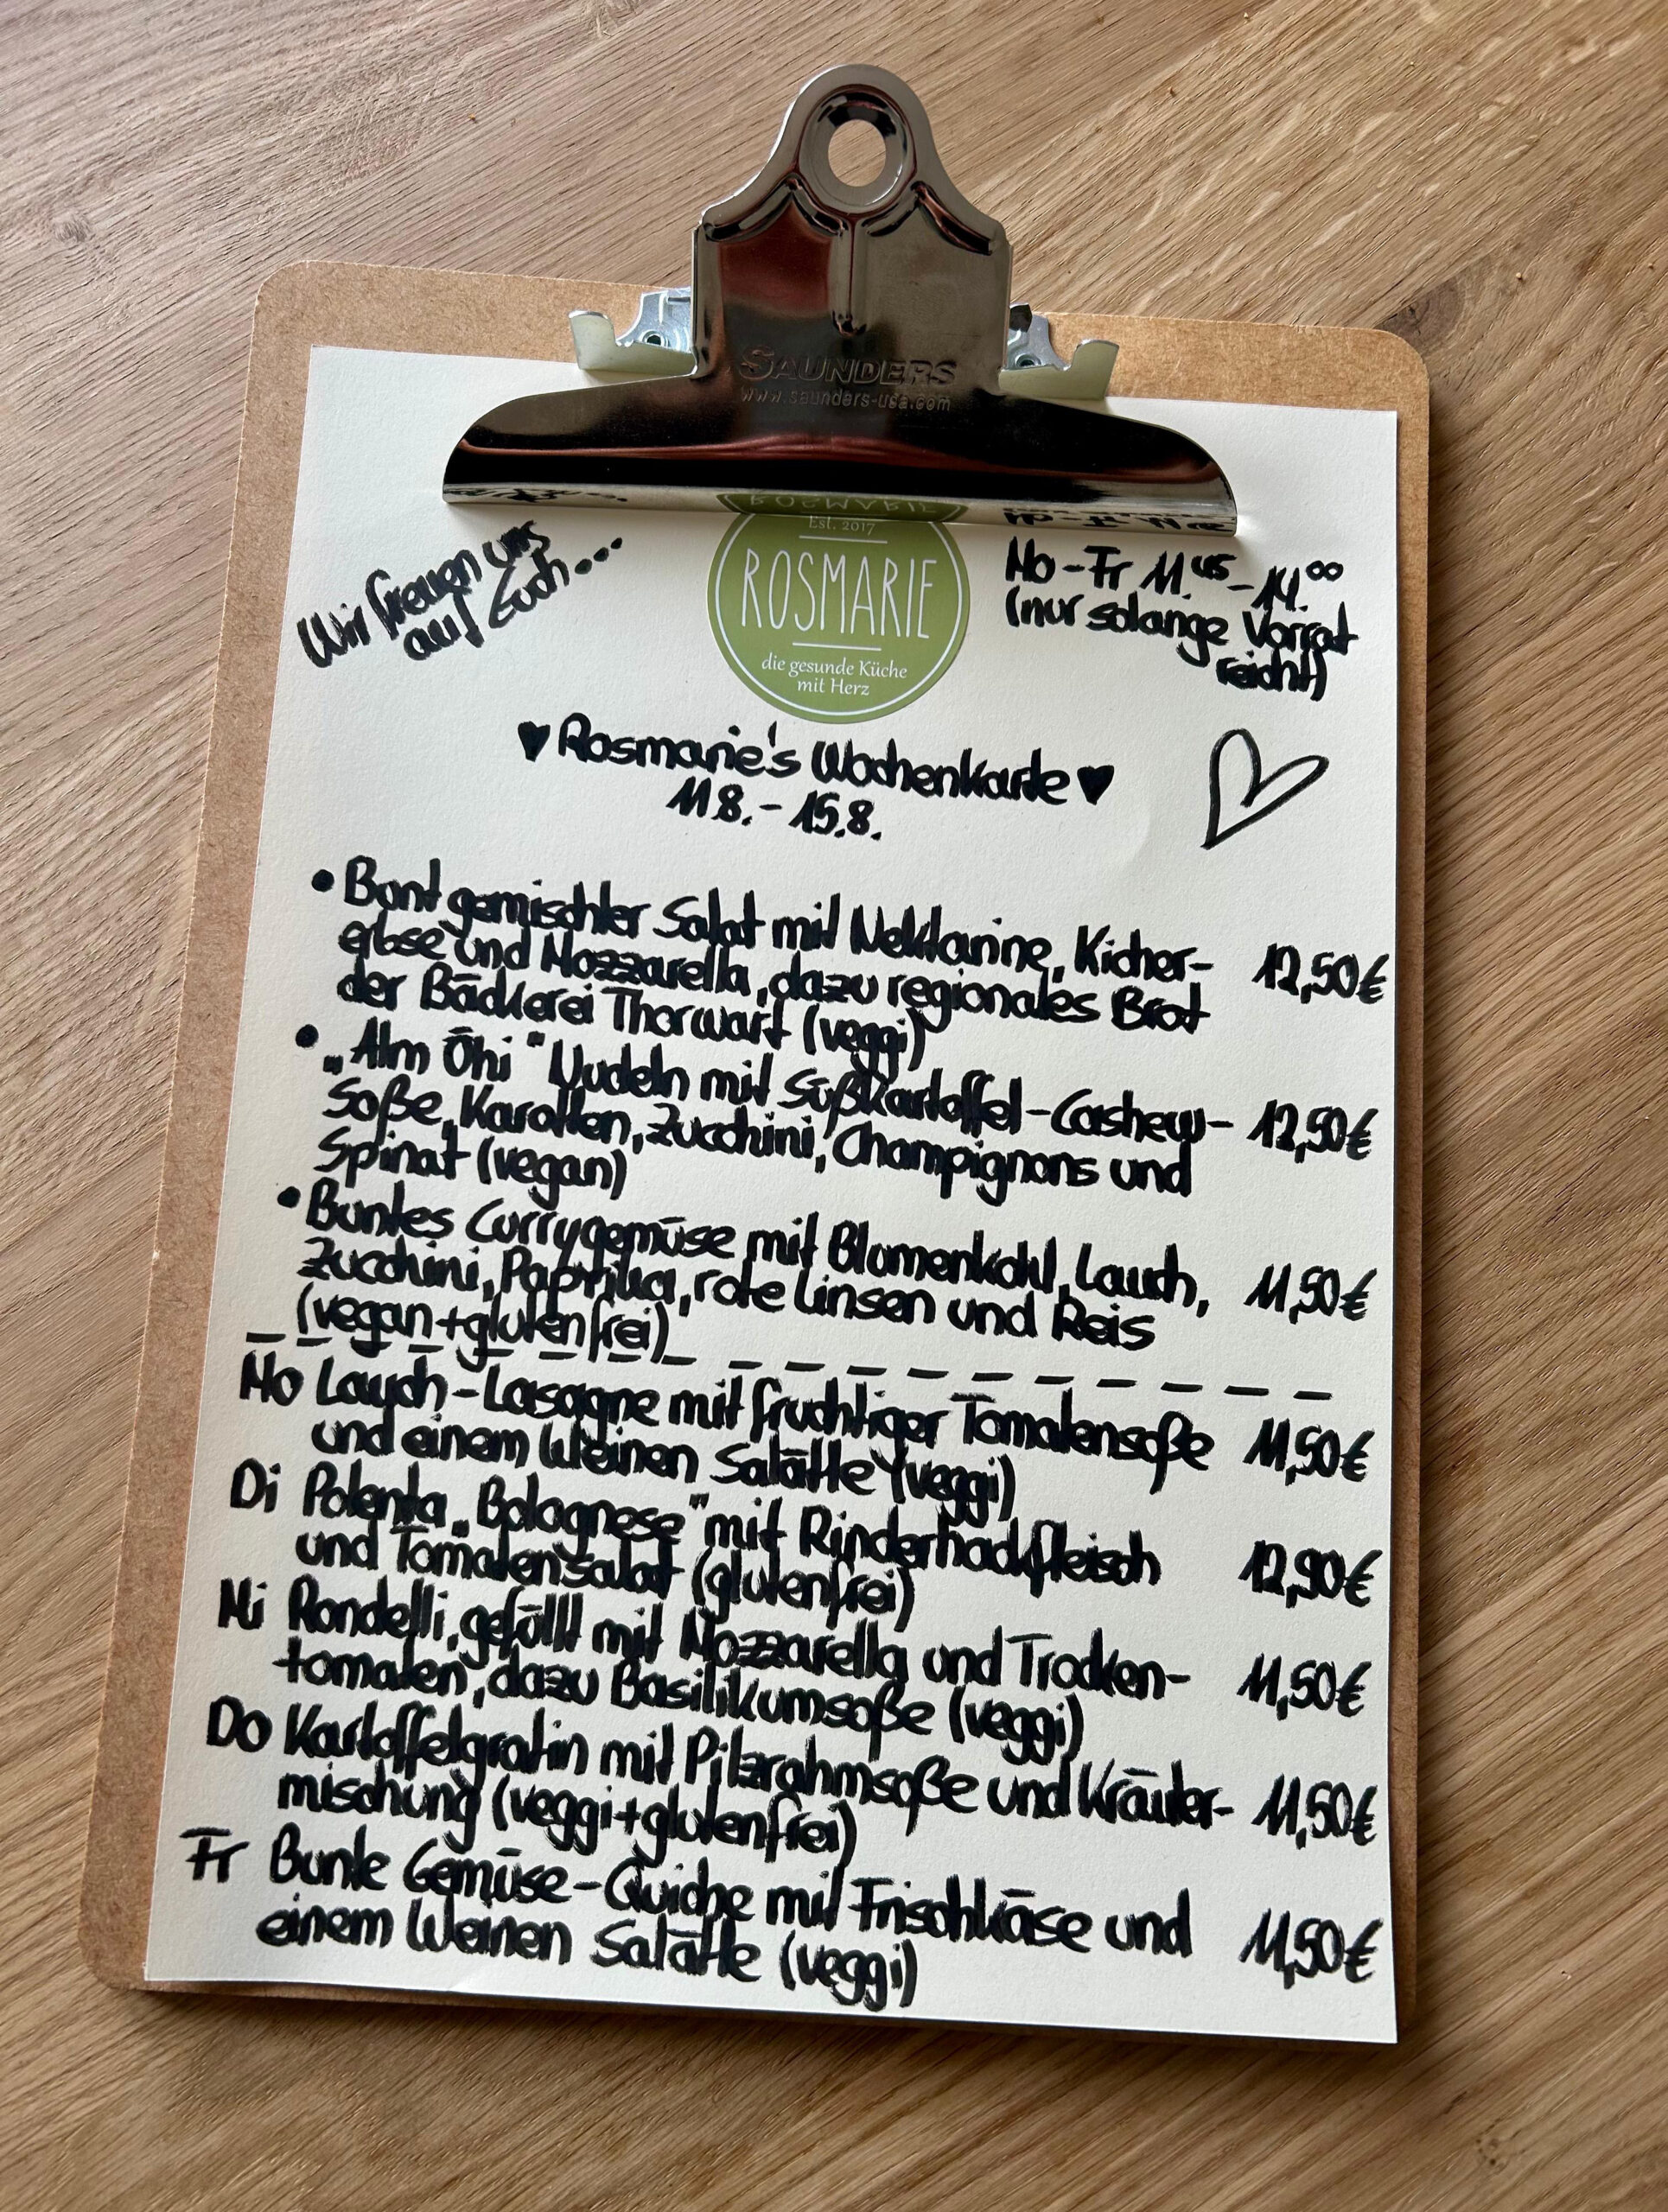 SAUNDERS
www.saunders-usa.com
Wir freuen uns
auf Euch...
Est. 2017
ROSMARIE
die gesunde Küche
mit Herz
Mo-Fr 11.45-14.00
(nur solange Vorrat
reicht)
♥ Rosmarie's Wochenkarte ♥
11.8.-15.8.
• Bunt gemischter Salat mit Nektarine, Kicher-
erbse und Mozzarella, dazu regionales Brot 12,50€
der Bäckerei Thorwart (veggi)
• „Alm Öhi" Nudeln mit Süßkartoffel-Cashew-
Soße, Karotten, Zucchini, Champignons und 12,50€
Spinat (vegan)
• Buntes Currygemüse mit Blumenkohl, Lauch,
Zucchini, Paprika, rote Linsen und Reis 11,50€
(vegan+glutenfrei)
Mo Lauch-Lasagne mit fruchtiger Tomatensoße 11,50€
und einem kleinen Salätle (veggi)
Di Polenta „Bolognese" mit Rinderhackfleisch 12,90€
und Tomatensalat (glutenfrei)
Mi Rondelli, gefüllt mit Mozzarella und Trocken- 11,50€
tomaten, dazu Basilikumsoße (veggi)
Do Kartoffelgratin mit Pilzrahmsoße und Kräuter- 11,50€
mischung (veggi+glutenfrei)
Fr Bunte Gemüse-Quiche mit Frischkäse und 11,50€
einem kleinen Salätle (veggi)